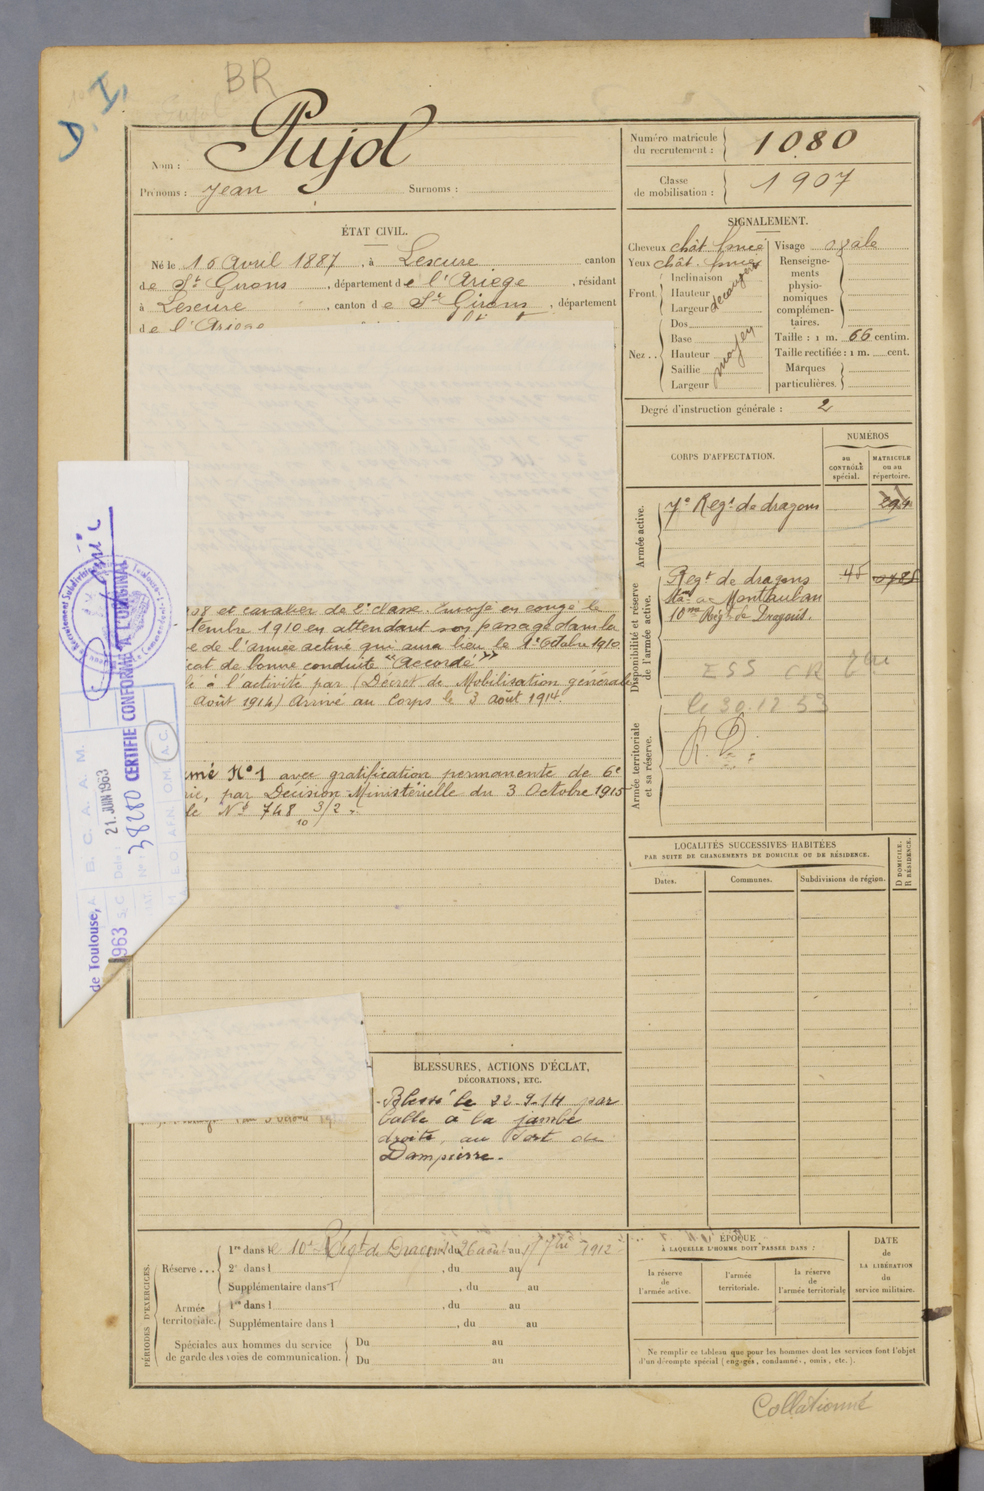 BR
D.I.
Nom : Pujol
Prénoms : Jean Surnoms :
Numéro matricule du recrutement : 1080
Classe de mobilisation : 1907
ÉTAT CIVIL.
Né le 10 Avril 1887, à Lescure canton
de St Girons, département de l'Ariège, résidant
à Lescure, canton de St Girons, département
de l'Ariège
SIGNALEMENT.
Cheveux chât foncé
Yeux chât. foncé
Front
Inclinaison
Hauteur
Largeur
découvert
Nez..
Dos
Base
Hauteur
Saillie
Largeur
moyen
Visage ovale
Renseigne-
ments
physio-
nomiques
complémen-
taires.
Taille : 1 m. 66 centim.
Taille rectifiée : 1 m. cent.
Marques
particulières.
Degré d'instruction générale : 2
CORPS D'AFFECTATION.
NUMÉROS
au CONTRÔLE spécial.
MATRICULE ou au répertoire.
Armée active.
7e Regt de dragons
Disponibilité et réserve de l'armée active.
Regt de dragons 48
Montauban
10me Rgt de Dragons.
ESS CR
le 30.12 53
R.D.
Armée territoriale et sa réserve.
08 et cavalier de 2e classe. Envoyé en congé le
tembre 1910 en attendant son passage dans la
e de l'armée active qui aura lieu le 1er Octobre 1910.
cat de bonne conduite "Accordé"
lé à l'activité par (Décret de Mobilisation générale
Août 1914) Arrivé au Corps le 3 août 1914
mé No 1 avec gratification permanente de 6e
rie, par Décision Ministérielle du 3 Octobre 1915
le No 748 3/2
10
Recrutement Subdivision
CERTIFIE CONFORME A L'ORIGINAL
B. C. A. A. M.
Date : 21. JUIN 1963
No 38280
A.C.
de Toulouse,
1963
LOCALITÉS SUCCESSIVES HABITÉES
PAR SUITE DE CHANGEMENTS DE DOMICILE OU DE RÉSIDENCE.
Dates. Communes. Subdivisions de région.
D DOMICILE.
R RÉSIDENCE.
BLESSURES, ACTIONS D'ÉCLAT,
DÉCORATIONS, ETC.
Blessé le 22-9-14 par
balle à la jambe
droite, au Fort de
Dampierre.
PÉRIODES D'EXERCICES.
Réserve...
1re dans le 10e Régt de Dragons du 26 août au 17 7bre 1912
2e dans l , du au
Supplémentaire dans l , du au
Armée territoriale.
1re dans l , du au
Supplémentaire dans l , du au
Spéciales aux hommes du service
de garde des voies de communication.
Du au
Du au
ÉPOQUE
À LAQUELLE L'HOMME DOIT PASSER DANS :
la réserve de l'armée active.
l'armée territoriale.
la réserve de l'armée territoriale
DATE
DE
LA LIBÉRATION
du
service militaire.
Ne remplir ce tableau que pour les hommes dont les services font l'objet
d'un décompte spécial (engagés, condamnés, omis, etc.).
Collationné